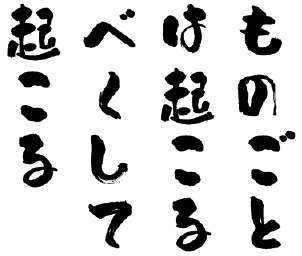 ものごと
は起こる
べくして
起こる